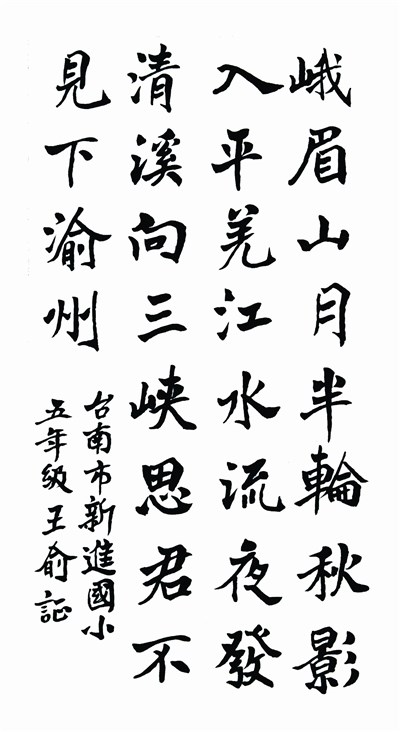 峨眉山月半輪秋影
入平羌江水流夜發
清溪向三峽思君不
見下渝州
台南市新進國小
五年級王俞証